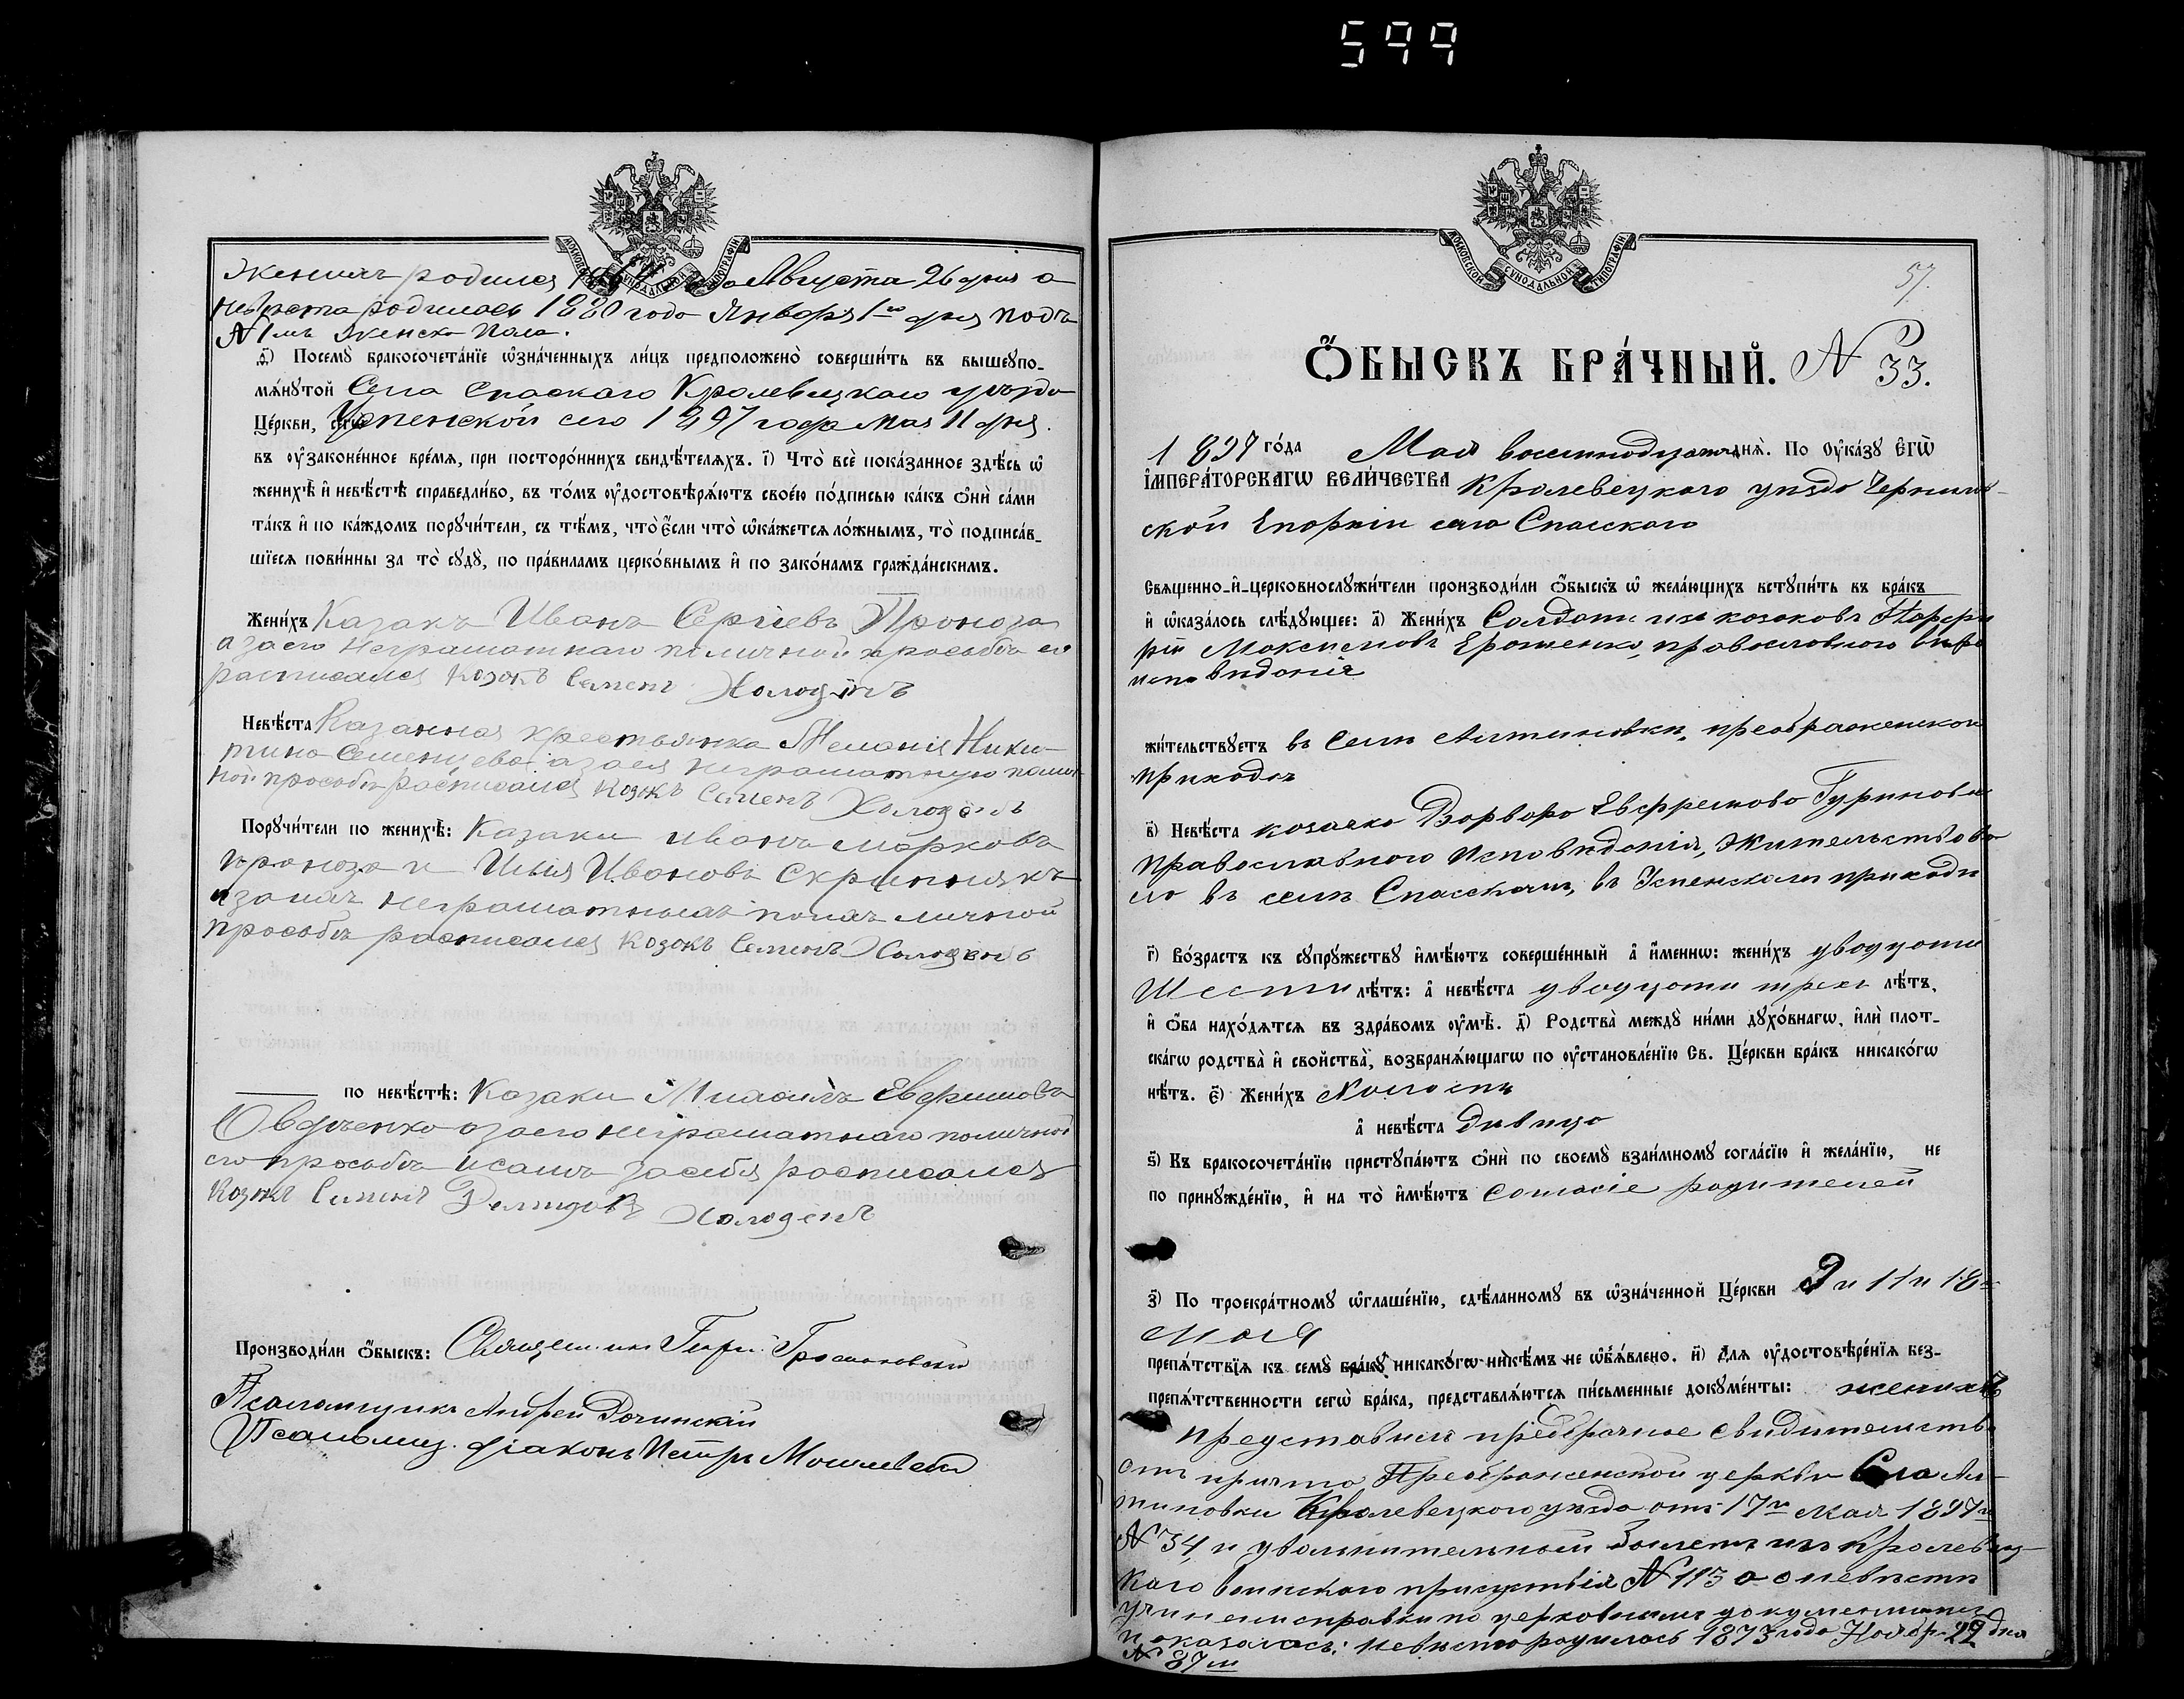 599
МОСКОВСКОЙ СѴНОДАЛЬНОЙ ТИПОГРАФІИ
Женихъ родился Августа 26 дня а
невѣста родилась 1880 года Января 1го дня подъ
№ 1мъ Женска Пола.
ѳ҃) Посемꙋ̀ бракосочета́нїе ѡ҆зна́ченныхъ ли́цъ предположено̀ соверши́ть въ вышеꙋпо-
мѧ́нꙋтой Села Спаскаго Кролевецкаго уѣзда
Це́ркви, Успенской сего 1897 года мая 11 дня.
въ ᲂу҆зако́ненное вре́мѧ, при посторо́ннихъ свидѣ́телѧхъ. і҃) Что̀ всѐ пока́занное здѣ́сь ѡ҆
женихѣ̀ и҆ невѣ́стѣ справедли́во, въ то́мъ ᲂу҆достовѣрѧ́ютъ свое́ю по́дписью ка́къ ѻ҆нѝ са́ми
та́къ и҆ по ка́ждомъ порꙋчи́тели, съ тѣ́мъ, что̀ є҆́сли что̀ ѡ҆ка́жетсѧ ло́жнымъ, то̀ подписа́в-
шїесѧ пови́нны за то̀ сꙋдꙋ̀, по пра́виламъ церко́внымъ и҆ по зако́намъ гражда́нскимъ.
Жени́хъ Казакъ Иванъ Сергіевъ Проноза
а за его неграматнаго по личной просьбѣ его
расписался Козакъ Семенъ Холодѣнъ
Невѣ́ста Казанная крестьянка Меланія Ники-
тина Семенцева а за ея неграматную по лич-
ной просьбѣ расписался Козакъ Семенъ Холодѣнъ
Порꙋчи́тели по женихѣ̀: Казаки Иванъ Марковъ
Проноза и Илья Ивановъ Скрипнякъ
а за ихъ неграматныхъ по ихъ личной
просьбѣ расписался Козакъ Семенъ Холодѣнъ
по невѣ́стѣ: Казаки Михаилъ Евфимовъ
Овдѣенко а за его неграматнаго по личной
его просьбѣ и самъ за себя расписался
Козакъ Семенъ Демидовъ Холоденъ
Производи́ли ѻ҆́быскъ: Священникъ
Псаломщикъ Андрей
Псаломщ. діаконъ Петръ
МОСКОВСКОЙ СѴНОДАЛЬНОЙ ТИПОГРАФІИ
57.
Ѻ҆́БЫСКЪ БРА́ЧНЫЙ. № 33.
1897 го́да Мая восемнадцатаго днѧ̀. По ᲂу҆ка́зꙋ Є҆ГѠ̀
І҆МПЕРА́ТОРСКАГѠ ВЕЛИ́ЧЕСТВА Кролевецкаго уѣзда Чернигов-
ской Епархіи села Спасского
Свѧщенно-и҆-церковнослꙋжи́тели производи́ли ѻ҆́быскъ ѡ҆ жела́ющихъ встꙋпи́ть въ бра́къ
и҆ ѡ҆каза́лось слѣ́дꙋющее: а҃) Жени́хъ Солдатъ изъ козаковъ Порфи
рій Максимовъ Ерошенко, православного
исповѣданія
жи́тельствꙋетъ въ Селѣ Алтыновки, преображенскои
приходѣ
в҃) Невѣ́ста козачка Варвара Евфремова Гуринова
православного исповѣданія, жительство ея
въ селѣ Спасскомъ, въ Успенскомъ приходѣ
г҃) Во́зрастъ къ сꙋпрꙋ́жествꙋ и҆мѣ́ютъ соверше́нный а҆ и҆́меннѡ: жени́хъ двадцати
Шести лѣ́тъ: а҆ невѣ́ста двадцати трехъ лѣ́тъ,
и҆ ѻ҆́ба нахо́дѧтсѧ въ здра́вомъ ᲂу҆мѣ̀. д҃) Родства̀ междꙋ ни́ми дꙋхо́внагѡ, и҆лѝ плот-
ска́гѡ родства̀ и҆ свойства̀, возбранѧ́ющагѡ по ᲂу҆становле́нїю Св. Це́ркви бра́къ никако́гѡ
нѣ́тъ. є҃) Жени́хъ Холостъ
а҆ невѣ́ста Дѣвица
ѕ҃) Къ бракосочета́нїю пристꙋпа́ютъ ѻ҆нѝ по своемꙋ̀ взаи́мномꙋ согла́сїю и҆ жела́нїю, не
по принꙋжде́нїю, и҆ на то̀ и҆мѣ́ютъ согласіе родителей
з҃) По троекра́тномꙋ ѡ҆глаше́нїю, сдѣ́ланномꙋ въ ѡ҆зна́ченной Це́ркви 9 и 11 и 18го
Мая
препѧ́тствїѧ къ семꙋ̀ бра́кꙋ никако́гѡ никѣ́мъ не ѡ҆б̾ѧ́влено. и҃) Длѧ ᲂу҆достовѣре́нїѧ без-
препѧ́тственности сегѡ̀ бра́ка, представлѧ́ютсѧ пи́сьменные докꙋме́нты: женихъ
представилъ предбрачное свидѣтельство
отъ причта Преображенской церкви Села Ал-
тыновки Кролевецкого уѣзда отъ 17го Мая 1897 г.
№ 34, и увольнительный билетъ изъ Кролевец-
каго воинскаго присутствія № 113 а о невѣстѣ
учинены справки по церковнымъ документамъ
и оказалось: невѣста родилась 1873 года Ноябр. 22 дня
№ 87 м